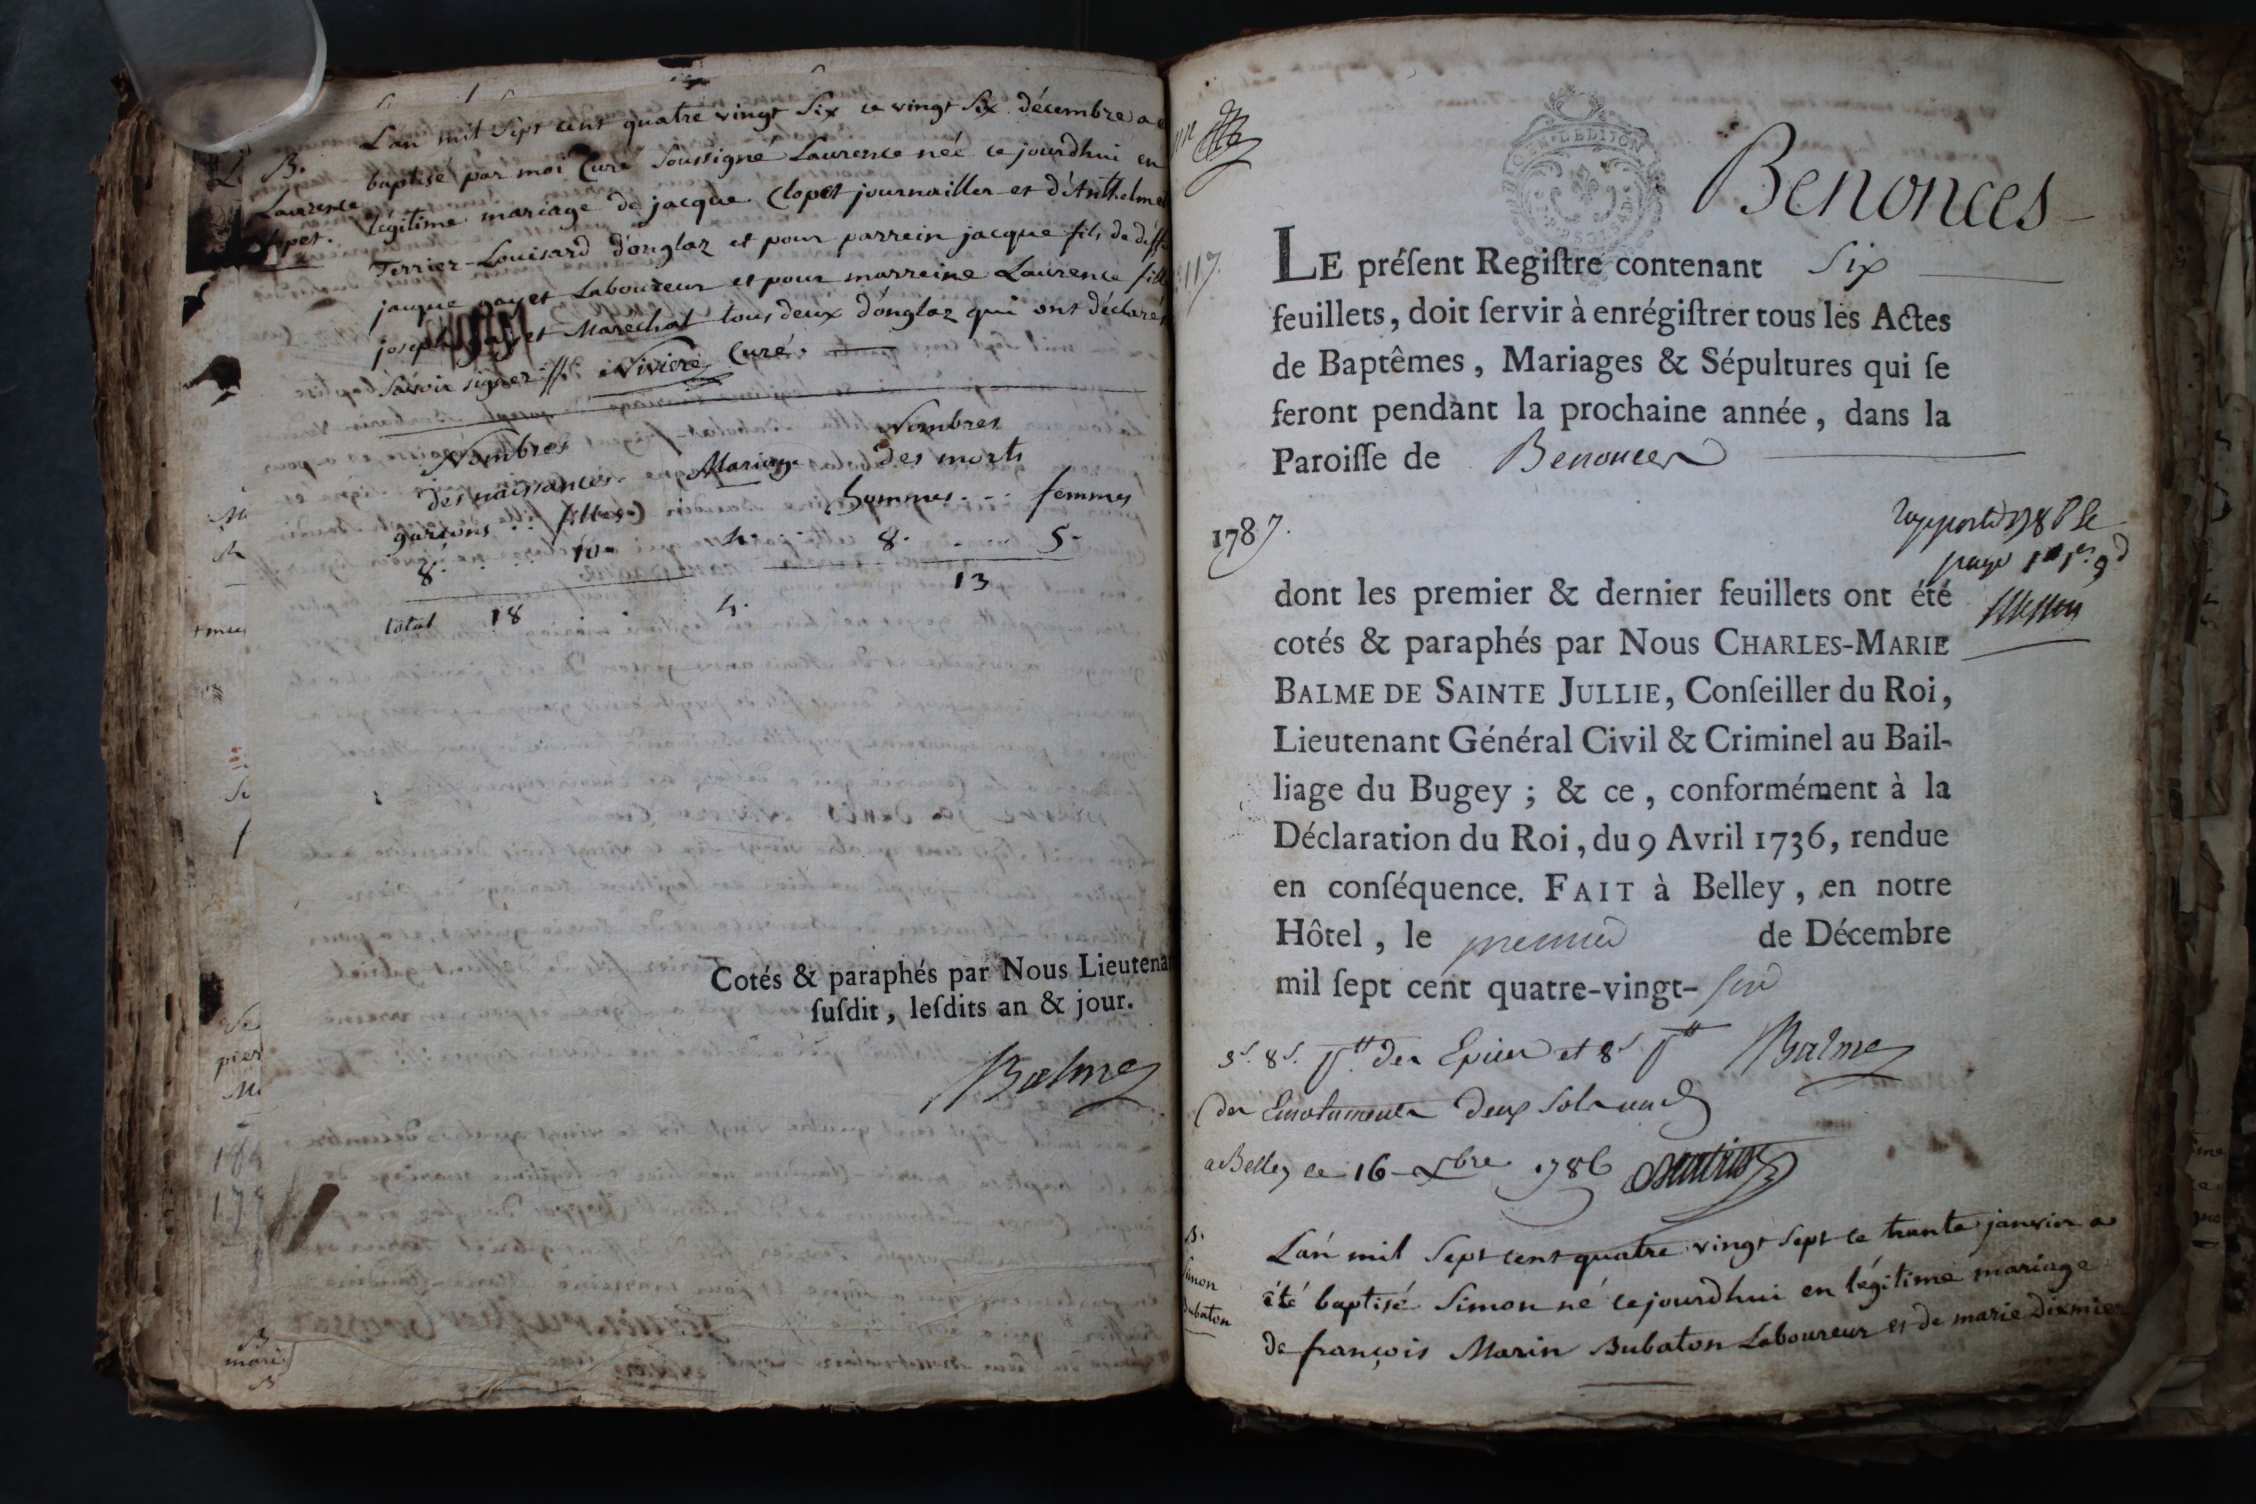 L'an mil Sept cent quatre vingt Six ce vingt Six décembre a
B.
baptisé par moi Curé Soussigné Laurence née ce jourdhui en
Laurence
légitime mariage de jacque Clopet journailler et d'Anthelme
Terrier-Louisard d'onglaz et pour parrein jacque fils de deff
jacque gayet Laboureur et pour marreine Laurence fille
joseph gayet Marechal tous deux d'onglaz qui ont déclarés
Savoir signer Curé.
Nombres
des naissances. Mariage
Nombres
des morts
garçons . . filles
hommes . - . femmes
8. . . . 10. 4. 8. . . 5.
total 18 . 4. 13
Cotés & paraphés par Nous Lieutenan
ſuſdit, leſdits an & jour.
Balme
117.
Benonces
LE préſent Regiſtre contenant Six
feuillets, doit ſervir à enrégiſtrer tous les Actes
de Baptêmes, Mariages & Sépultures qui ſe
feront pendant la prochaine année, dans la
Paroiſſe de Benonces
1787.
dont les premier & dernier feuillets ont été
cotés & paraphés par Nous CHARLES-MARIE
BALME DE SAINTE JULLIE, Conſeiller du Roi,
Lieutenant Général Civil & Criminel au Bail-
liage du Bugey ; & ce, conformément à la
Déclaration du Roi, du 9 Avril 1736, rendue
en conſéquence. FAIT à Belley, en notre
Hôtel, le premier de Décembre
mil ſept cent quatre-vingt- six
des Epices et 8s Balme
des Emoluments deux sols un d
a Belley ce 16 Xbre 1786
B.
Simon
Bubaton
L'an mil Sept cent quatre vingt Sept ce trente janvier a
été baptisé Simon né cejourdhui en légitime mariage
de françois Marin Bubaton Laboureur et de marie Dixmier